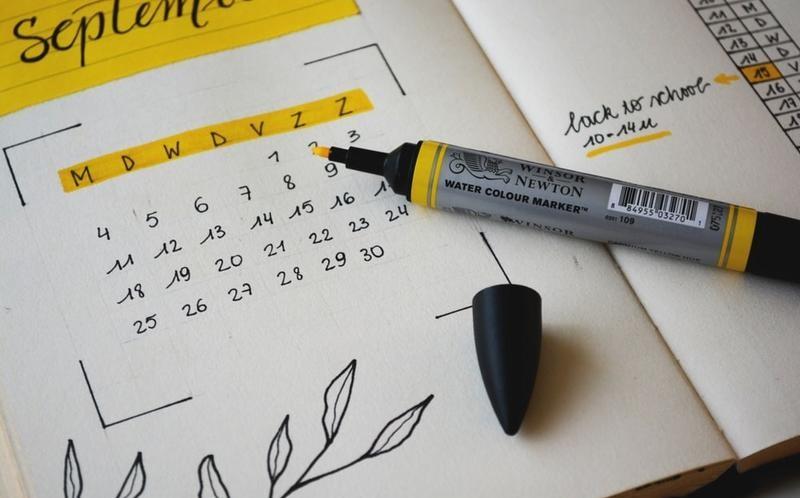 September
M D W D V Z Z
1 2 3
4 5 6 7 8 9
11 12 13 14 15 16
18 19 20 21 22 23 24
25 26 27 28 29 30
WINSOR
& NEWTON
WATER COLOUR MARKER™
WINSOR
8 84955 03270 1
11 M
12 D
13 W
14 D
15 V
16
17
back to school
10-14u